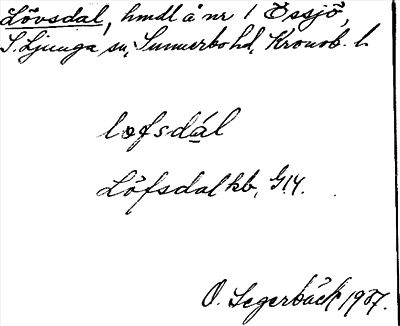 Lövsdal, hmdl å nr 1 Össjö,
S. Ljunga sn, Sunnerbo hd, Kronob. l.
lœfsdál
Löfsdal kb, G14.
O. Segerbäck 1937.